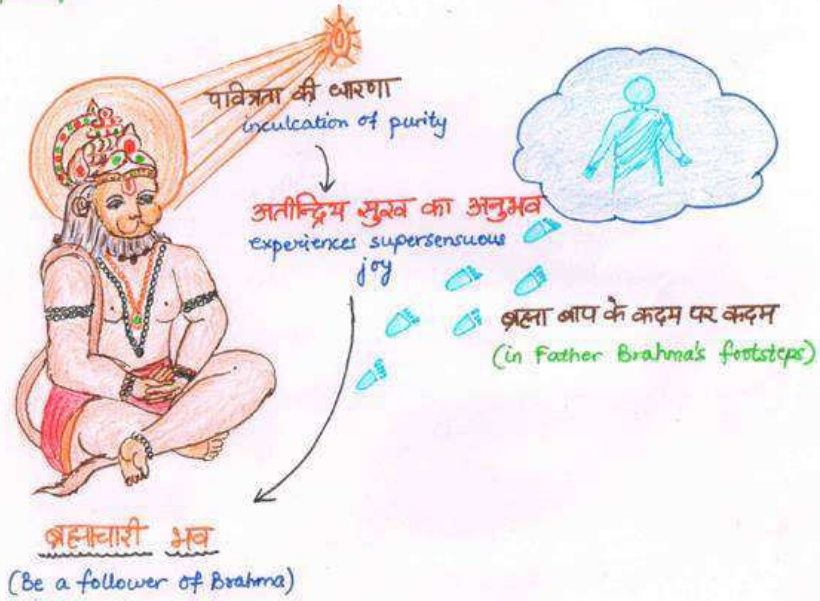 पवित्रता की धारणा
inculcation of purity
अतीन्द्रिय सुख का अनुभव
experiences supersensuous
joy
ब्रह्मा बाप के कदम पर कदम
(in Father Brahma's footsteps)
ब्रह्माचारी भव
(Be a follower of Brahma)